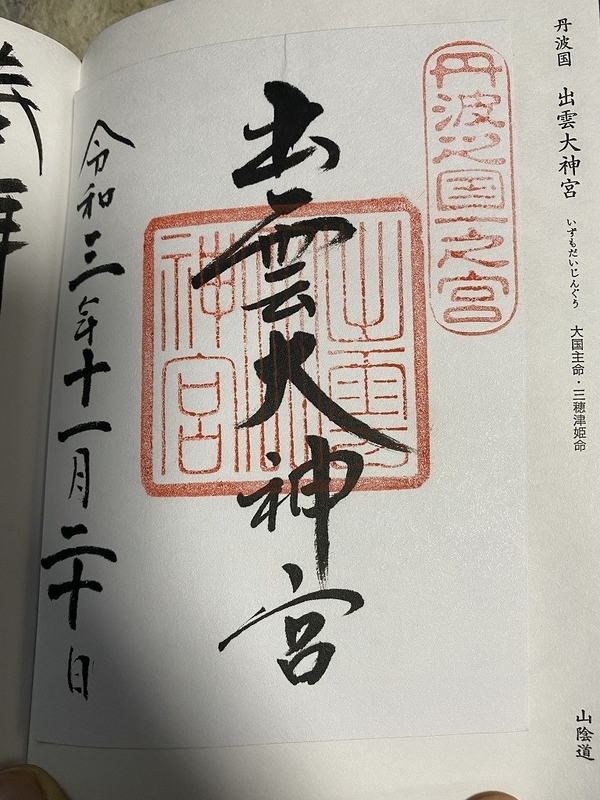 丹波国 出雲大神宮 いずもだいじんぐう 大国主命・三穂津姫命
山陰道
丹波之国一之宮
出雲大神宮
出雲
神宮
令和三年十一月二十日
拝